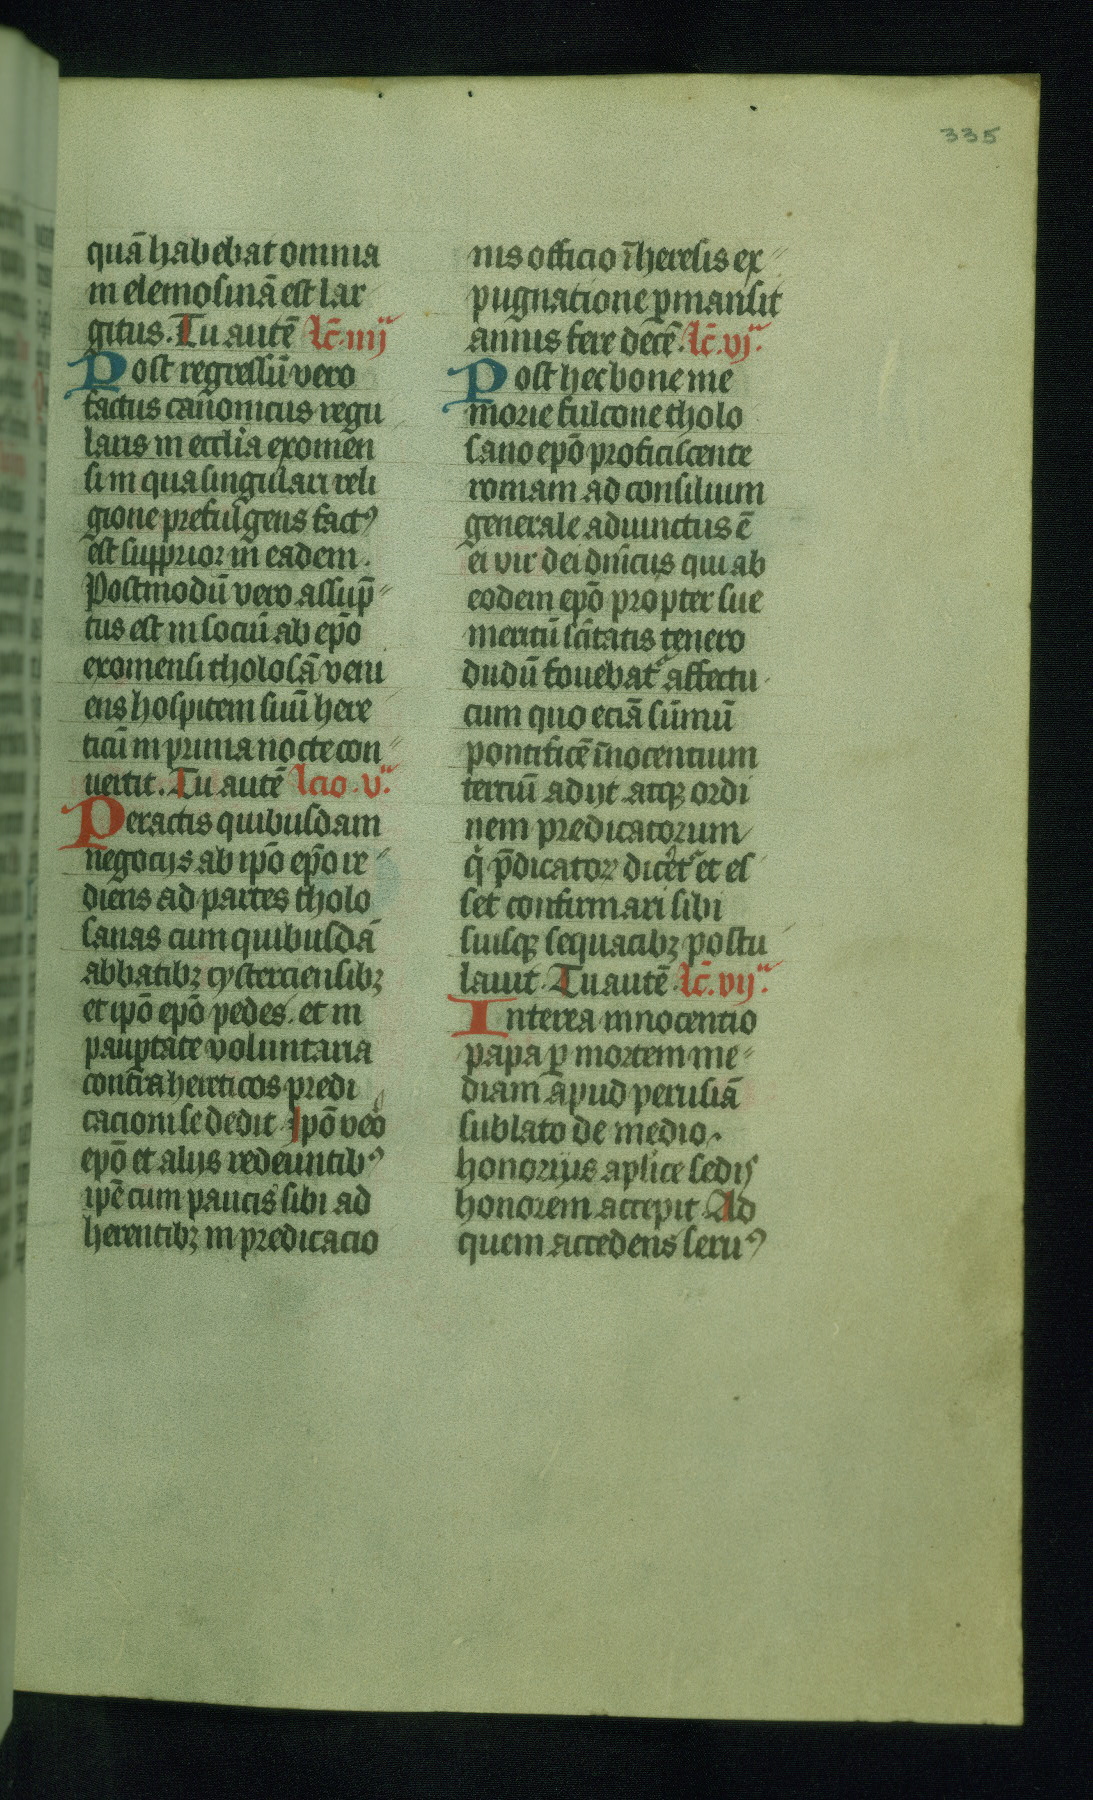 335
quā habebat omnia
in elemosinā est lar
gitus. Tu autē lc̄. iiijᵃ
Post regressū vero
factus canonicus regu
laris in ecclīa exomen
si in qua singulari reli
gione prefulgens factꝰ
est supprior in eadem.
Postmodū vero assup̄
tus est in sociū ab ep̄o
exomensi tholosā veni
ens hospitem suū here
ticū in prima nocte con
uertit. Tu autē lcio. v.ᵃ
Peractis quibusdam
negocijs ab ip̄o ep̄o re
diens ad partes tholo
sanas cum quibusdā
abbatibꝫ cysterciensibꝫ
et ip̄o ep̄o pedes. et in
paup̱tate voluntaria
contra hereticos predi
cacioni se dedit Ip̄o veo
ep̄o et alijs redeuntibꝰ
ip̄e cum paucis sibi ad
herentibꝫ in predicacio
nis officio ī heresis ex
pugnatione p̱mansit
annis fere decē. lc̄. vjᵃ.
Post hec bone me
morie fulcone tholo
sano ep̄o proficiscente
romam ad consilium
generale adiunctus ē
ei vir dei dn̄icus qui ab
eodem ep̄o propter sue
meritū sc̄itatis tenero
dudū fouebat᷑ affectu
cum quo eciā sūmū
pontificē īnocentium
terciū adijt atqꝫ ordi
nem predicatorum
q̇ p̄dicatoꝝ dicet᷑ et es
set confirmari sibi
suisqꝫ sequacibꝫ postu
lauit. Tu autē. lc̄. vijᵃ.
Interea innocentio
papa p̱ mortem me
diam apud perusiā
sublato de medio.
honorijus ap̄lice sedis
honorem accepit. Ad
quem accedens seruꝰ